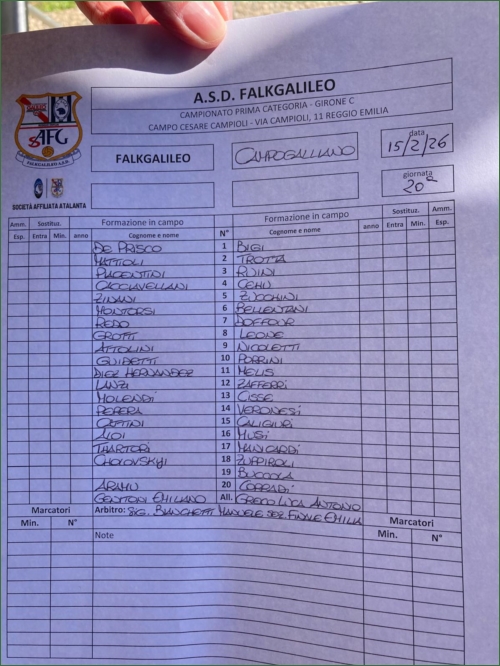 A.S.D. FALKGALILEO
CAMPIONATO PRIMA CATEGORIA - GIRONE C
CAMPO CESARE CAMPIOLI - VIA CAMPIOLI, 11 REGGIO EMILIA
FALKGALILEO A.S.D.
SOCIETÀ AFFILIATA ATALANTA
FALKGALILEO CAMPOGALLIANO
data
15/2/26
giornata
20a
Amm. Sostituz. Formazione in campo N° Formazione in campo Sostituz. Amm.
Esp. Entra Min. anno Cognome e nome Cognome e nome anno Entra Min. Esp.
DE PRISCO 1 BIGI
MATTIOLI 2 TROTTA
PIACENTINI 3 RUINI
CACCIAVELLANI 4
ZINANI 5 ZUCCHINI
MONTORSI 6 BELLENTANI
REDO 7 DOFFOUR
8 LEONE
ATTOLINI 9 NICOLETTI
GUIDETTI 10 PORRINI
DIEZ HERNANDEZ 11 MELIS
LANZI 12 ZAFFERRI
13 CISSE
14 VERONESI
15 CALIGIURI
16 MUSI
17 MANICARDI
18 ZUFFIROLI
19 BUCCOLA
20 CORRADI
EMILIANO All. GRECO LUCA ANTONIO
Arbitro: SIG. BIANCHETTI MANUELE SEZ. FINALE EMILIA
Marcatori Marcatori
Min. N° Note Min. N°